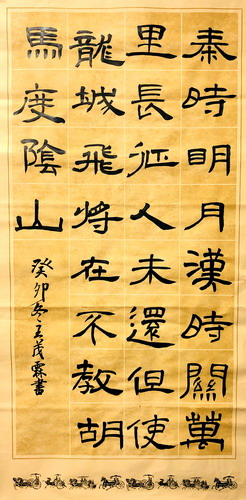 秦時明月漢時關萬
里長征人未還但使
龍城飛將在不教胡
馬度陰山
癸卯冬王茂霖書